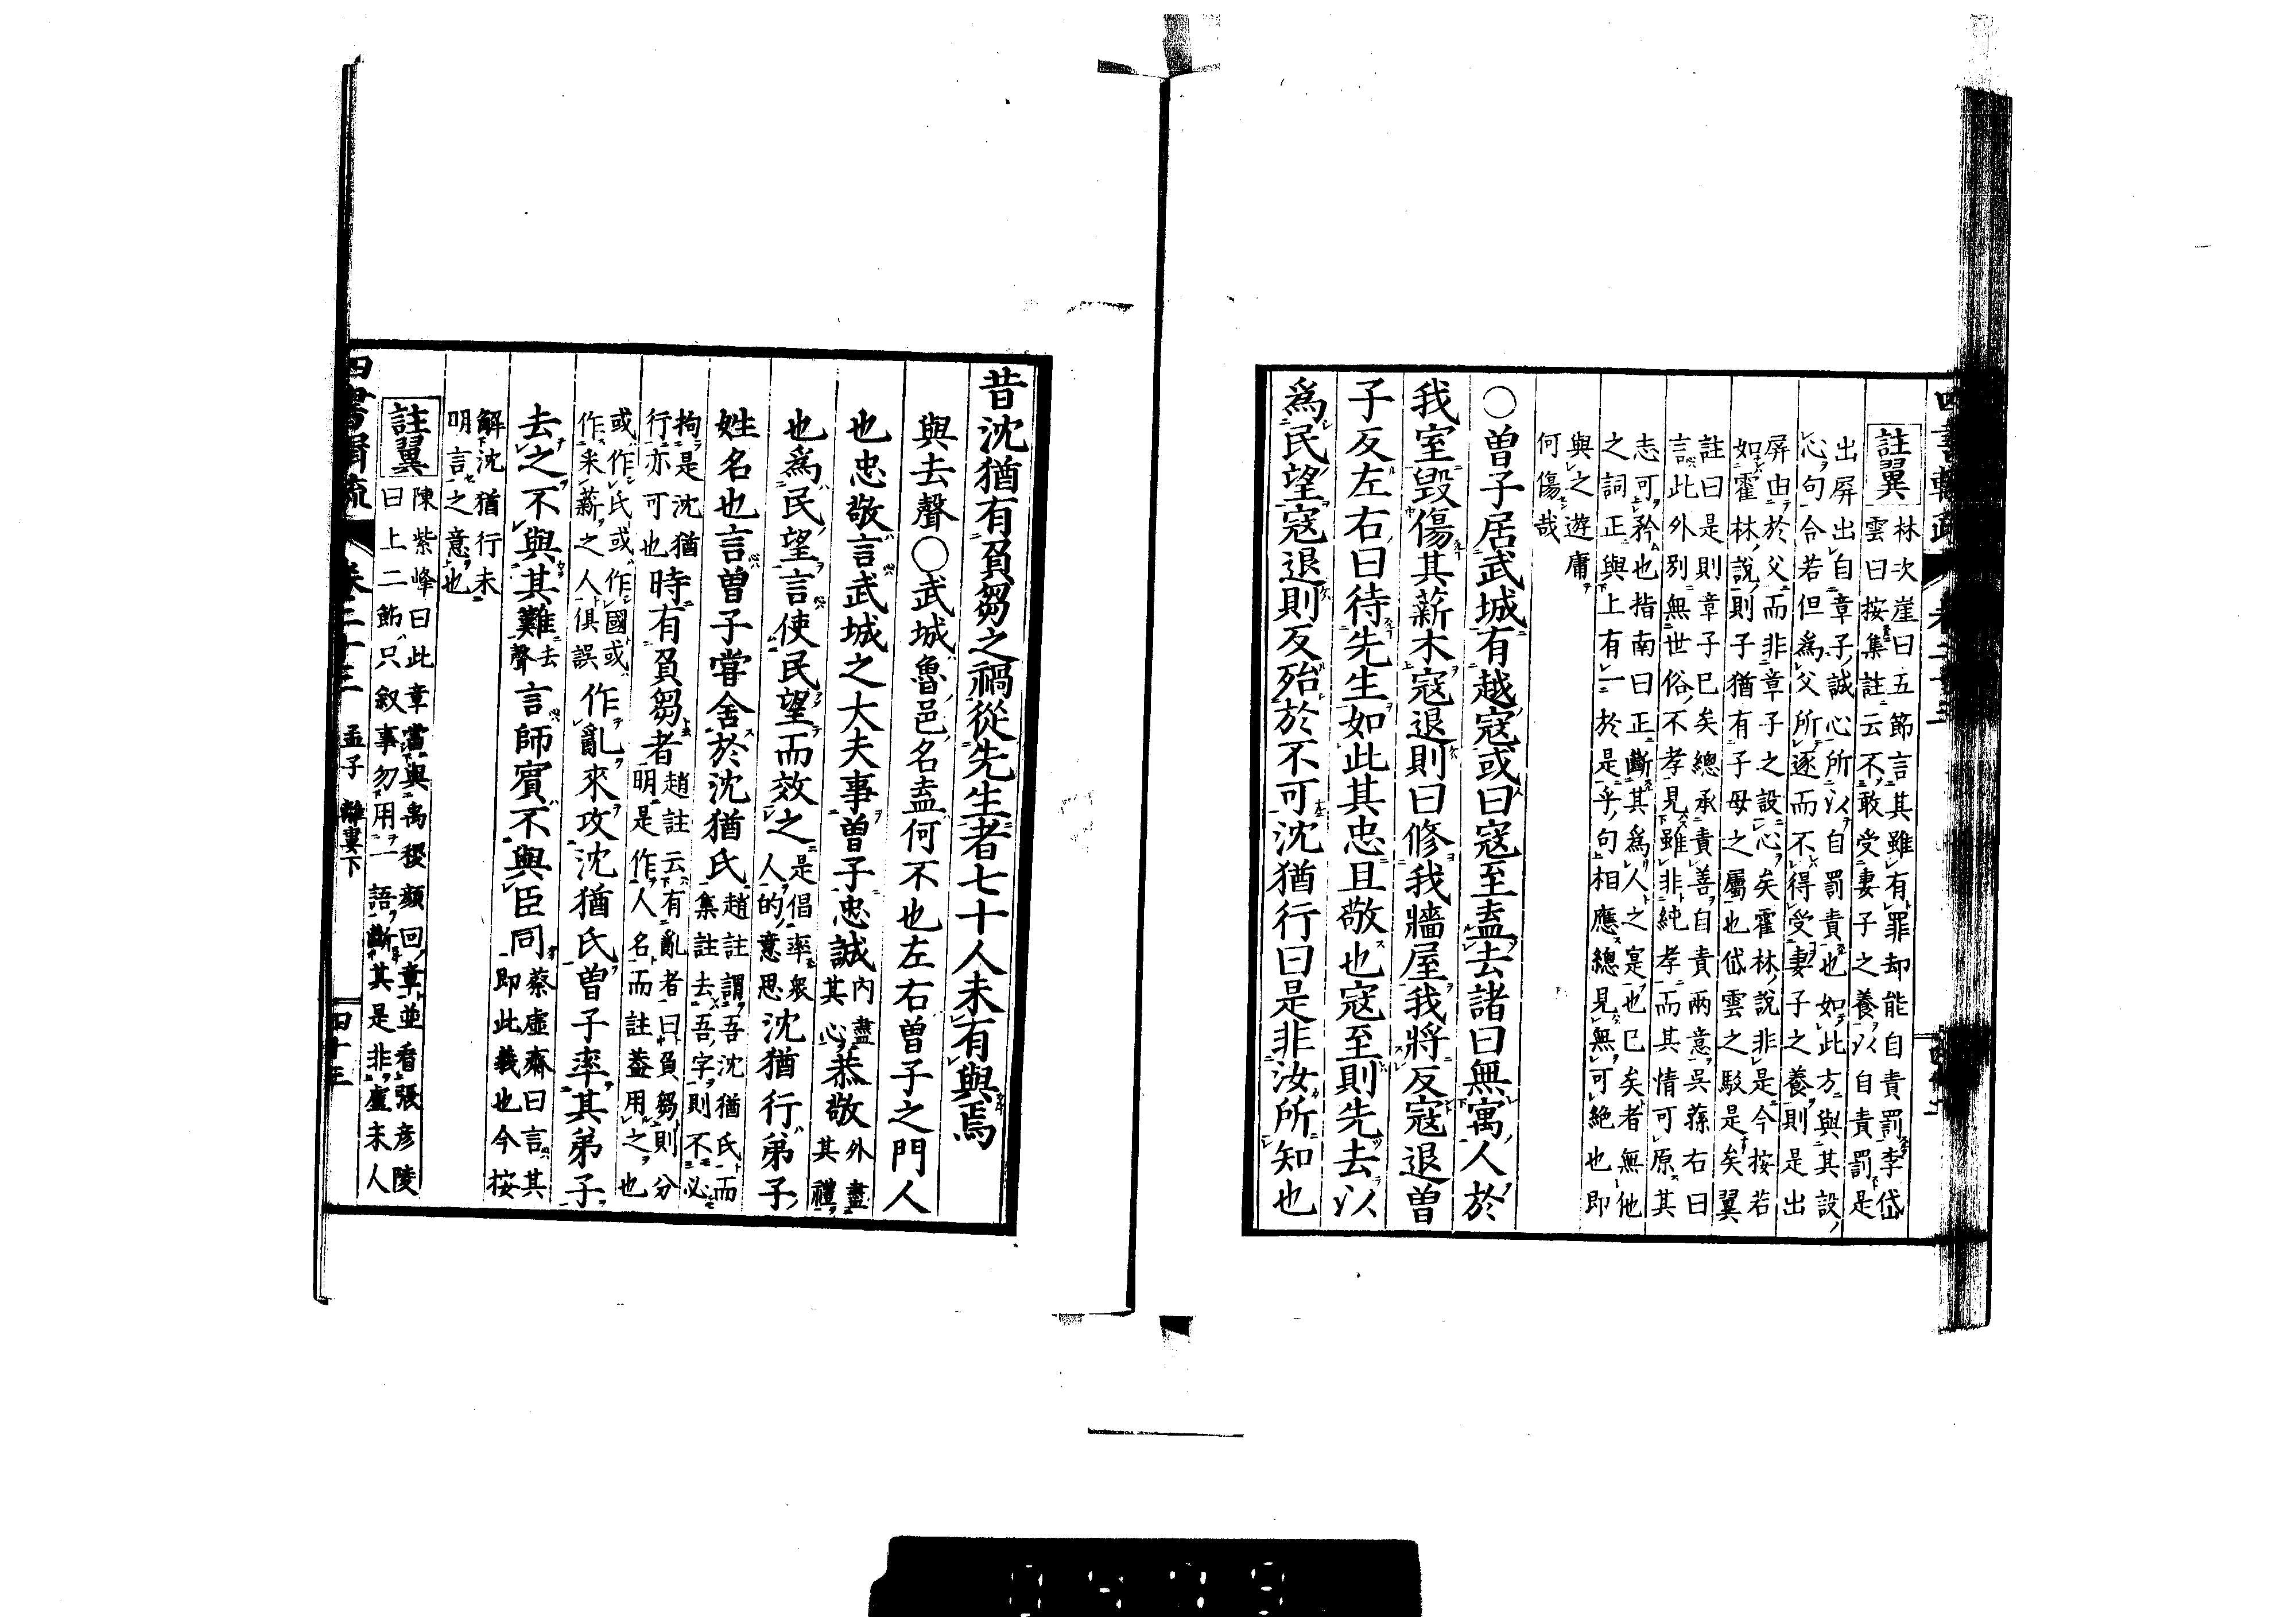 四書輯疏
卷二十三
註翼
林次崖曰五節言其雖有罪却能自責罰李岱
雲曰按集註云不敢受妻子之養以自責罰是
出屏出自章子誠心所以自罰責也如此方與其設
心句合若但爲父所逐而不得受妻子之養則是出
屏由於父而非章子之設心矣霍林說非是今按若
如霍林說則子猶有子母之屬也岱雲之駁是矣翼
註曰是則章子已矣總承責善自責兩意吳蓀右曰
言此外別無世俗不孝見雖非純孝而其情可原其
志可矜也指南曰正斷其爲人之寔也已矣者無他
之詞正與上有一於是乎句相應總見無可絶也即
與之遊庸
何傷哉
○曽子居武城有越寇或曰寇至盍去諸曰無寓人於
我室毀傷其薪木寇退則曰修我牆屋我將反寇退曽
子反左右曰待先生如此其忠且敬也寇至則先去以
爲民望寇退則反殆於不可沈猶行曰是非汝所知也
昔沈猶有負芻之禍從先生者七十人未有與焉
與去聲○武城魯邑名盍何不也左右曽子之門人
也忠敬言武城之大夫事曽子忠誠内盡其心恭敬外盡其禮
也爲民望言使民望而效之是倡率衆人的意思沈猶行弟子
姓名也言曽子嘗舍於沈猶氏趙註謂吾沈猶氏而集註去吾字則不必
拘是沈猶行亦可也時有負芻者趙註云有亂者曰負芻則分明是作人名而註葢用之也
或作氏或作國或作采薪之人俱誤作亂來攻沈猶氏曽子率其弟子
去之不與其難去聲言師賓不與臣同蔡虛齋曰言其即此義也今按
解沈猶行未
明言之意也
註翼
陳紫峰曰此章當與禹稷顔回章並看張彦陵
曰上二節只叙事勿用一語斷其是非盧未人
四書輯疏
卷二十三
孟子
離婁下
四十三